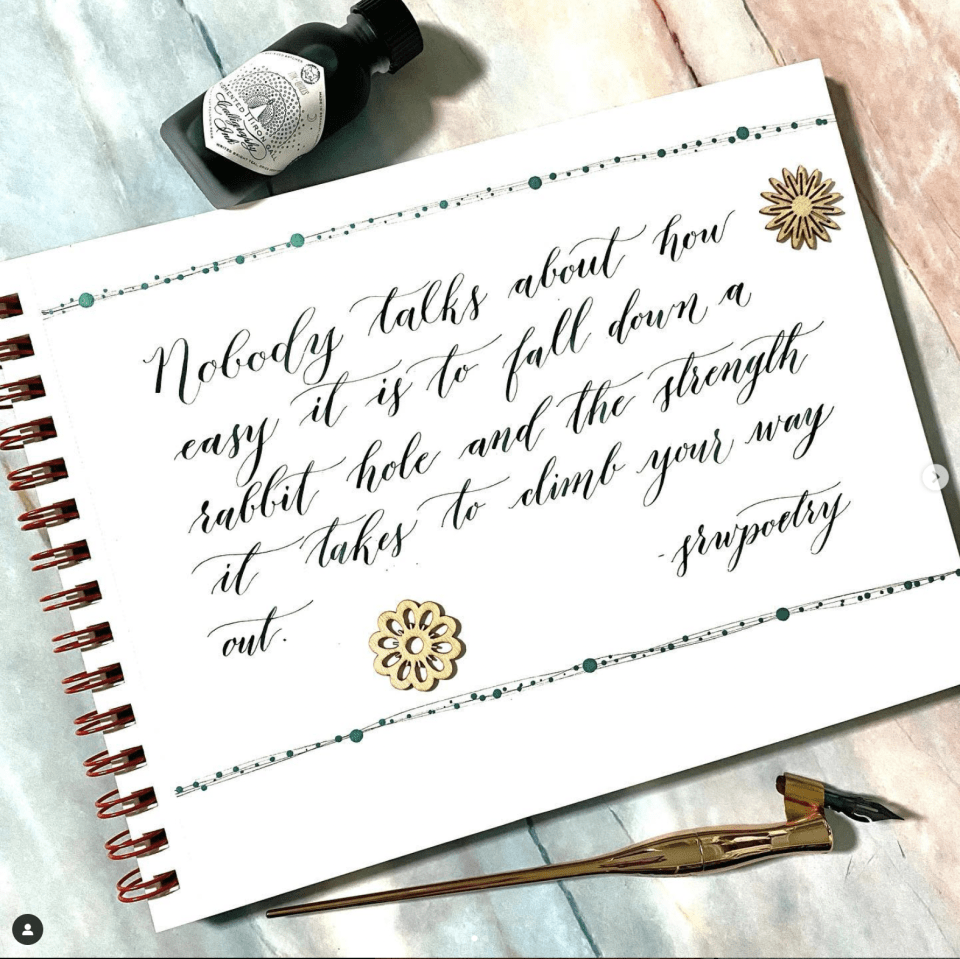 PIGMENTED IRON GALL
Calligraphy
Ink
Nobody talks about how
easy it is to fall down a
rabbit hole and the strength
it takes to climb your way
out.
- srwpoetry